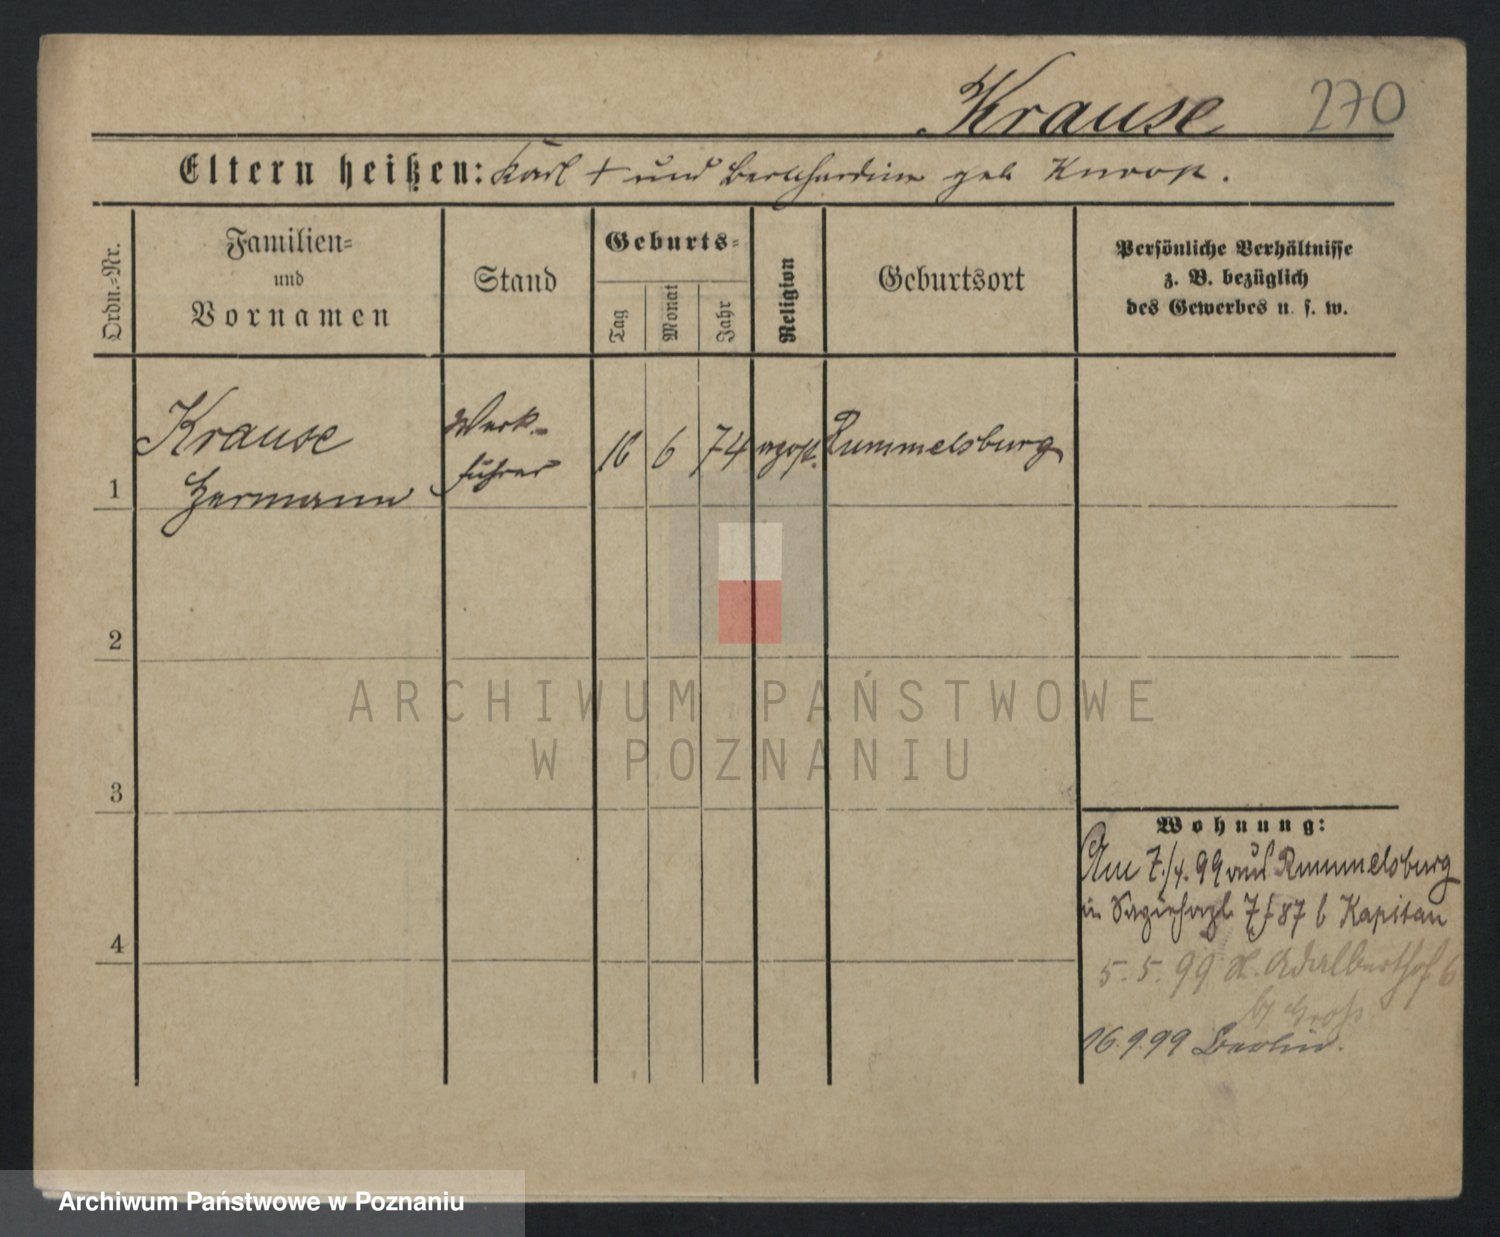 Krause 270
Eltern heißen: Karl + und Bernhardine geb Knoop.
Ordn.-Nr.
Familien-
und
Vornamen
Stand
Geburts-
Tag
Monat
Jahr
Religion
Geburtsort
Persönliche Verhältnisse
z. B. bezüglich
des Gewerbes u. s. w.
1
Krause
Hermann
Werk-
führer
16 6 74 Rummelsburg
2
ARCHIWUM PAŃSTWOWE
W POZNANIU
3
Wohnung:
Am 7./4. 99 aus Rummelsburg
in 87 b Kapitan
4
5. 5. 99 Adalberthof 6
b Groß
16.9.99 Berlin.
Archiwum Państwowe w Poznaniu